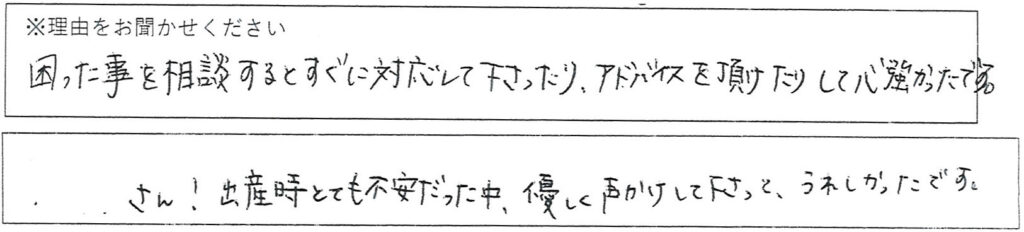 ※理由をお聞かせください
困った事を相談するとすぐに対応して下さったり、アドバイスを頂けたりして心強かったです。
さん！出産時とても不安だった中、優しく声かけして下さって、うれしかったです。